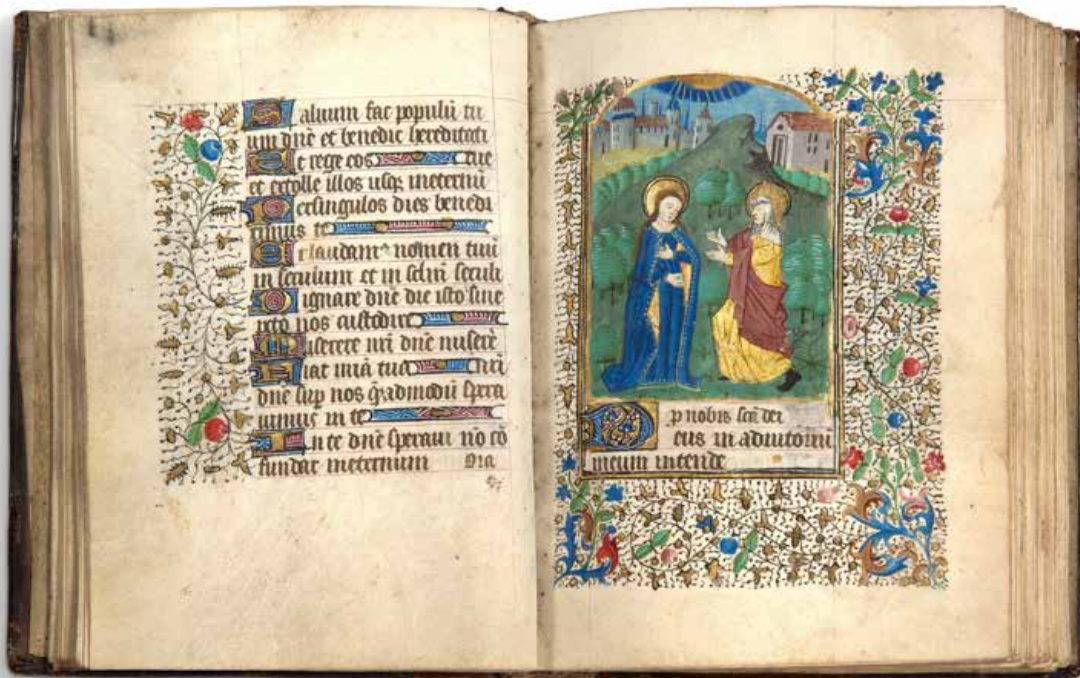 Saluum fac populū tu
um dn̄e et benedic hereditati
Et rege eos tue
et extolle illos usq; ineternū
Persingulos dies benedi
cimus te
Et laudam᷒ nomen tuū
in seculum et in sclm̄ seculi
Dignare dn̄e die isto sine
pctō nos custodire
Miserere nr̄i dn̄e miserē
Fiat mīa tua nr̄i
dn̄e sup nos q̄admodū spera
uimus in te
In te dn̄e speraui nō cō
fundar ineternum Ora
p nobis scā dei
Deus in adiutoriū
meum intende